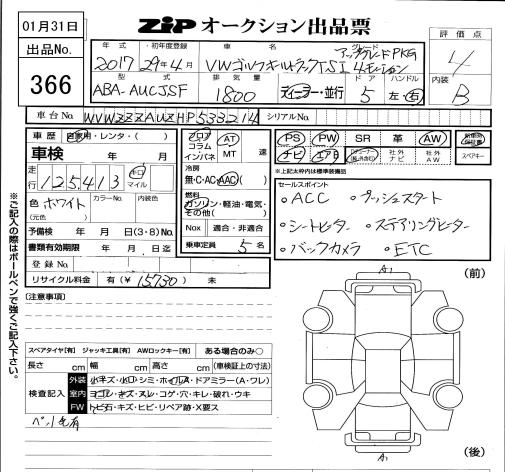 01月31日
ZIP オークション出品票
出品No.
366
年式 ・初年度登録 車名 グレード
2017 29年4月 VWゴルフオールトラックTSI 4モーション
アップグレードPKG
型式 排気量 ドア ハンドル
ABA-AUCJSF 1800 ディーラー・並行 5 左・右
評価点
4
内装
B
車台No. WVWZZZAUZHP533214 シリアルNo.
車歴 自家用・レンタ・( )
車検 年 月
走行 125,413 キロ マイル
色 ホワイト カラーNo. 内装色
(元色)
予備検 年 月 日(3・8)No.
書類有効期限 年 月 日迄
登録No.
リサイクル料金 有(¥ 15730 ) 未
フロア コラム インパネ
AT MT 速
冷房
無・C・AC・AAC( )
燃料
ガソリン・軽油・電気・その他( )
Nox 適合・非適合
乗車定員 5 名
PS PW SR 革 AW
ナビ エアB 社外ナビ 社外AW
スペアキー
※上記太枠内は標準装備品
セールスポイント
・ACC ・プッシュスタート
・シートヒーター ・ステアリングヒーター
・バックカメラ ・ETC
※ご記入の際はボールペンで強くご記入下さい。
[注意事項]
スペアタイヤ[有] ジャッキ工具[有] AWロックキー[有] ある場合のみ○
長さ cm 幅 cm 高さ cm (車検証上の寸法)
検査記入
外装 小キズ・小凹・シミ・ホイルA・ドアミラー(A・ワレ)
室内 ヨゴレ・キズ・スレ・コゲ・穴・キレ・破れ・ウキ
FW トビ石・キズ・ヒビ・リペア跡・X要ス
ペット毛有
(前)
A1
A1
(後)